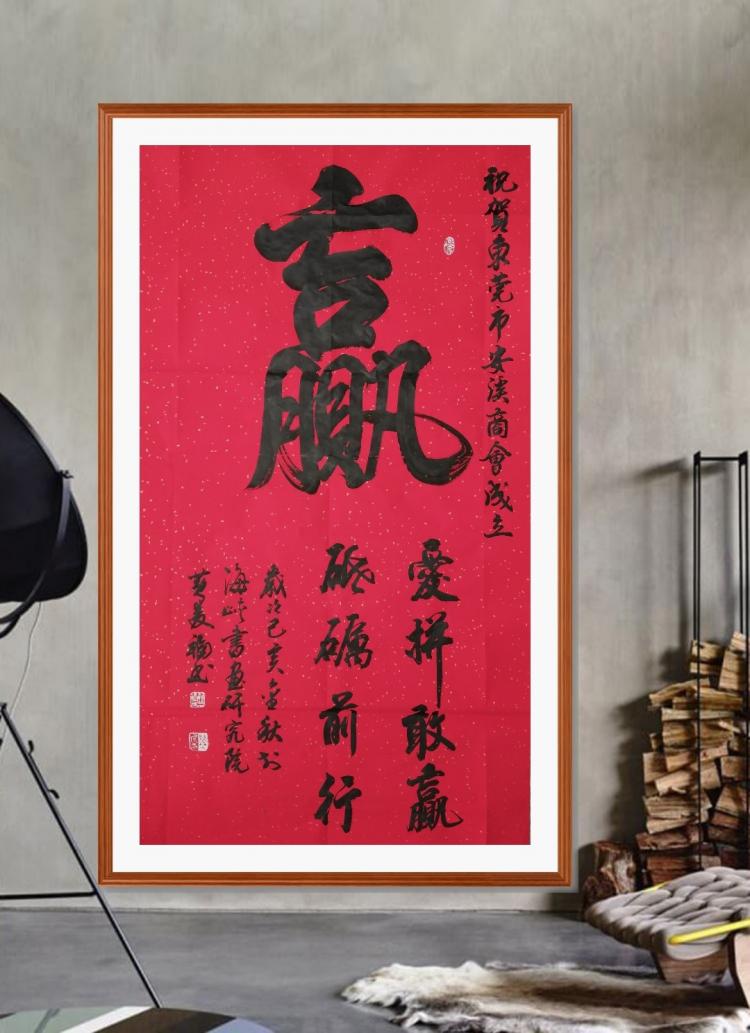 祝賀東莞市安溪商會成立
贏
愛拼敢贏
砥礪前行
歲次己亥金秋於
海峡書畫研究院
黄美福书